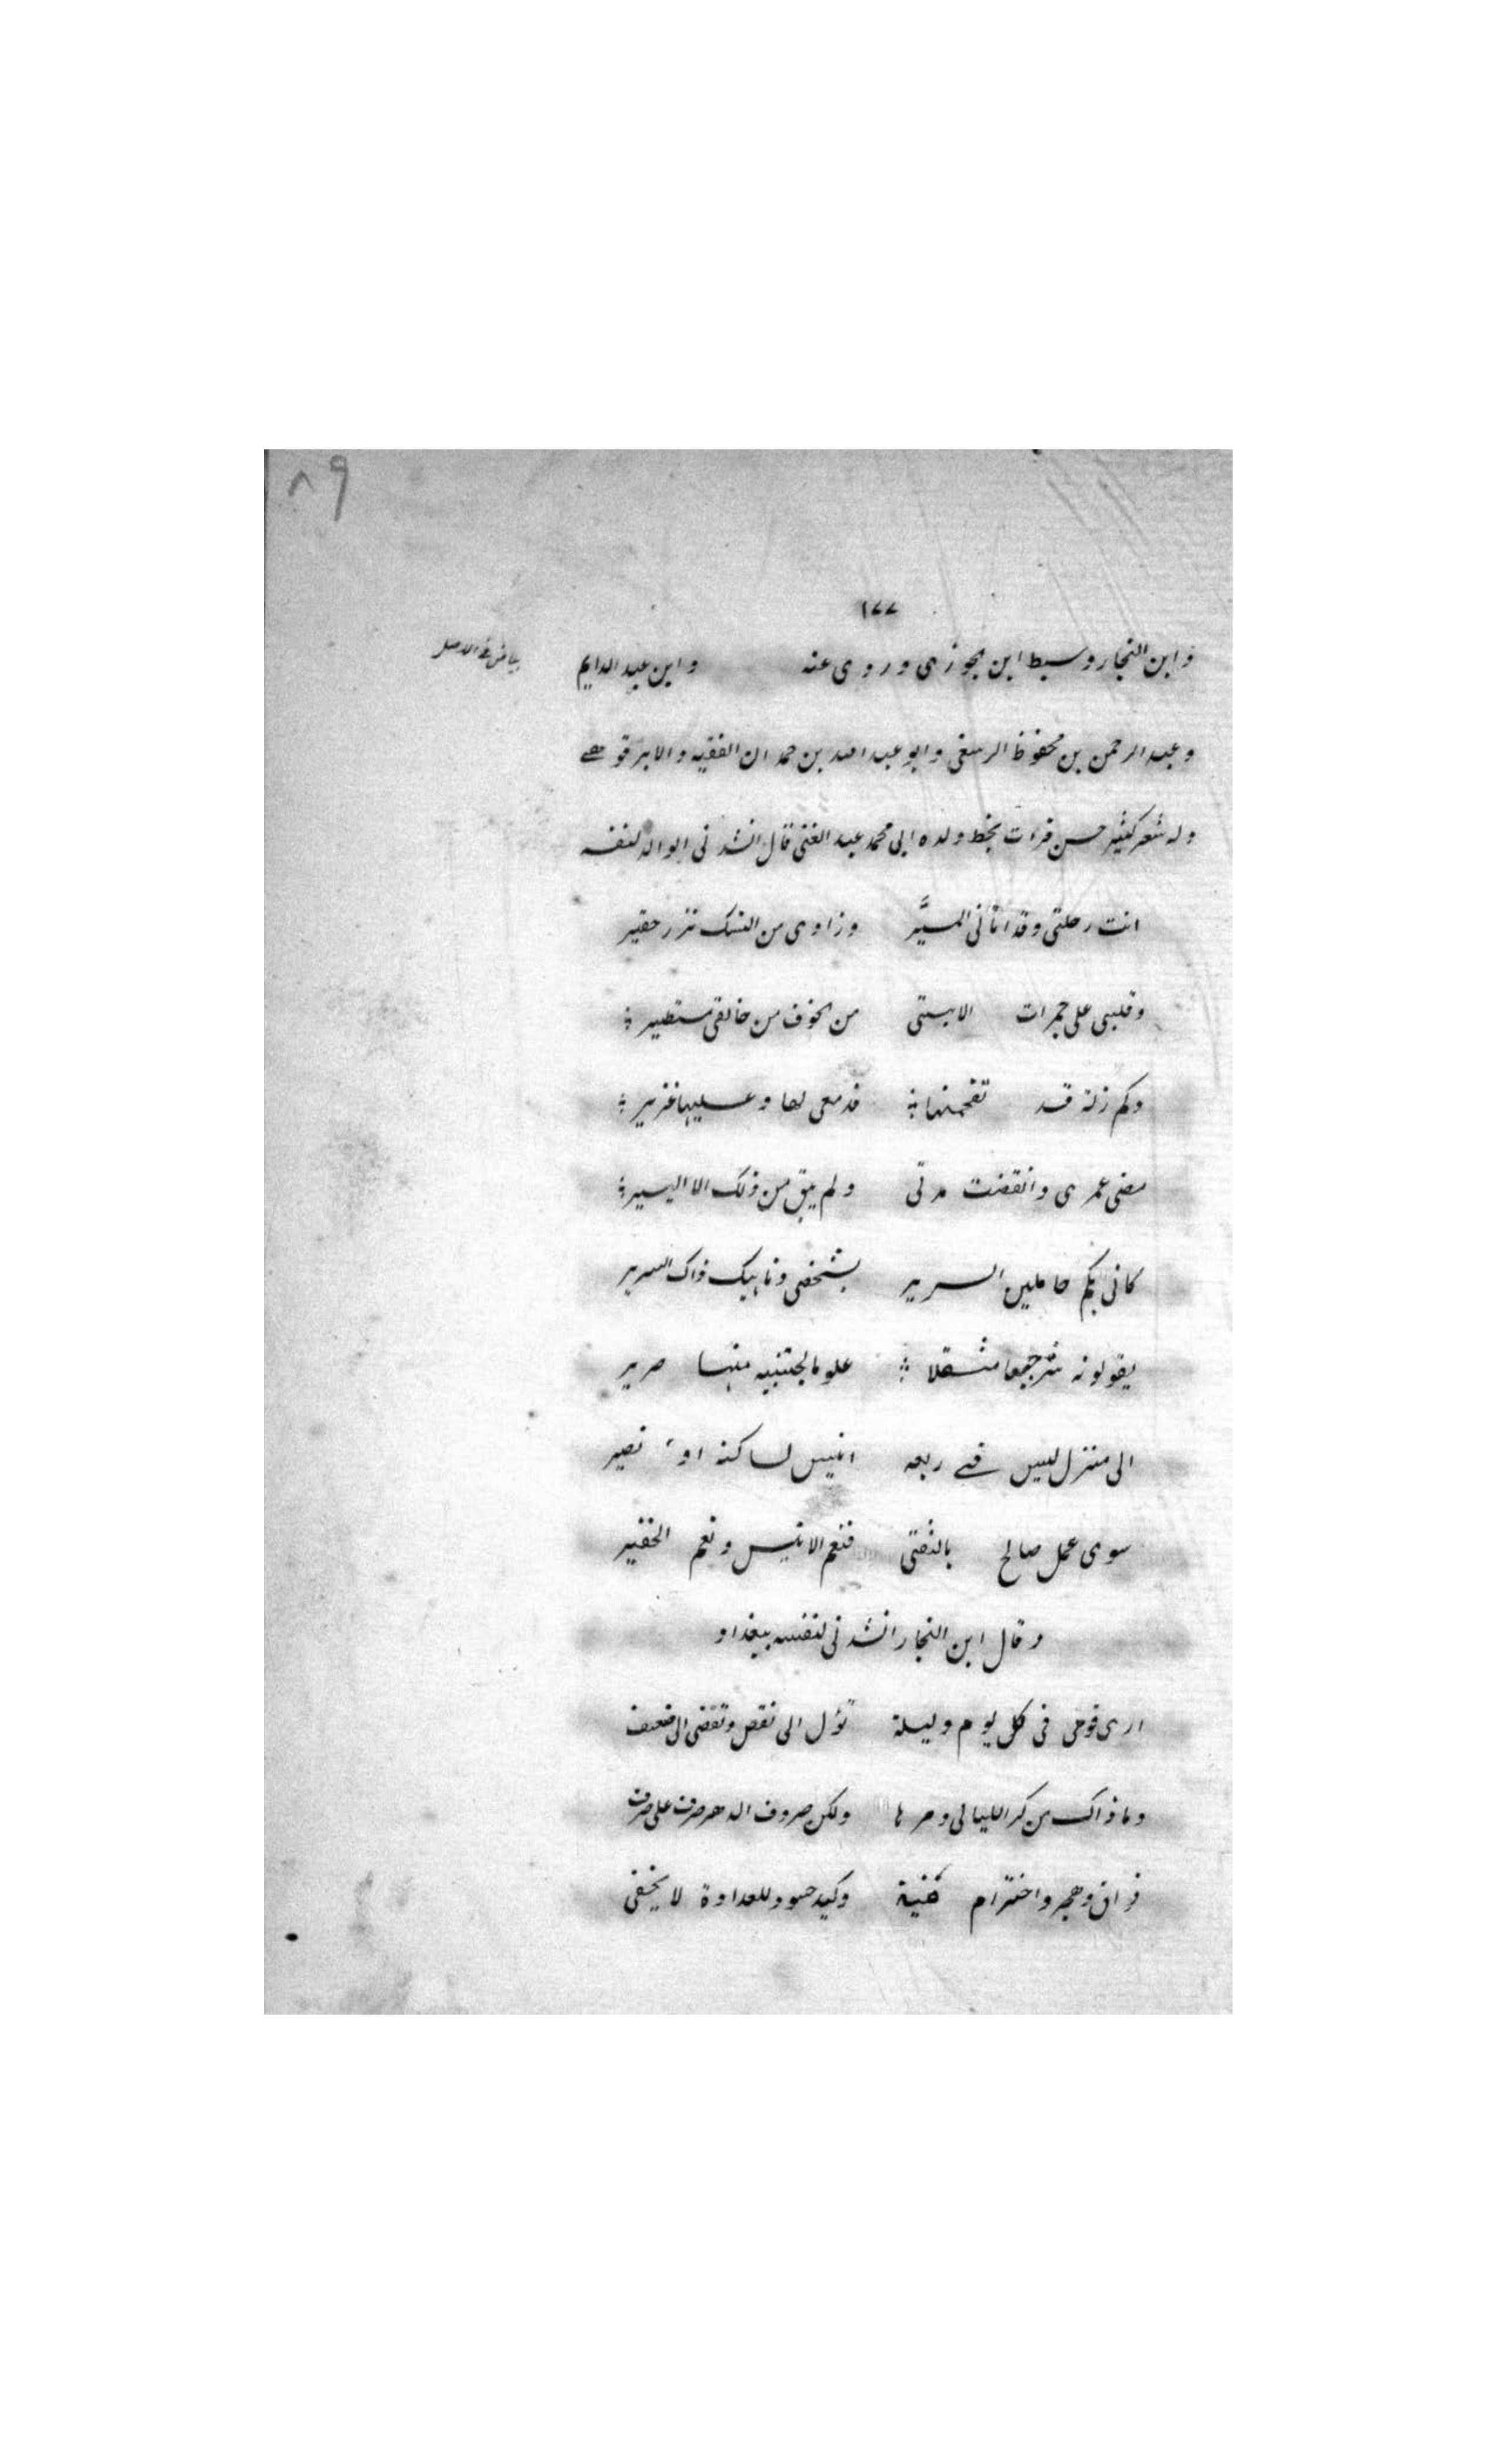 ٨٩
١٧٧
وابن النجار وسبط ابن الجوزى وروى عنه وابن عبد الدايم
بياض فى الاصل
وعبد الرحمن بن محفوظ الرسغى وابو عبد الله بن حمدان الفقيه والابرقوهى
وله شعر كثير حسن قرءت بخط ولده ابى محمد عبد الغنى قال انشدنى الوالد لنفسه
انت رحلتى وقد اتانى المسيَّر وزادى من النسك نزر حقير
وقلبى على جمرات الاستى من الخوف من خالقى مستطير ؛
وكم زلة قد تقحمتها ؛ فدمعى لها وعليها غزير ؛
مضى عمرى وانقضت مدتى ولم يبق من ذلك الا اليسير ؛
كانى بكم حاملين السرير بشخصى وناهيك ذاك السرير
يقولونه شرجعا مثقلا ؛ علوما لجتنبيه منها صرير
الى منزل ليس فى ربعه انيس لساكنه او نصير
سوى عمل صالح بالتقى فنعم الانيس ونعم الخفير
وقال ابن النجار انشدنى لنفسه ببغداد
ارى قوتى فى كل يوم وليلة تؤل الى نقص وتقضى الى ضعف
وما ذاك من كر الليالى ومرها ولكن صروف الدهر صرف على صرف
فراق وهجر واخترام منية وكيد حسود للعداوة لا يخفى